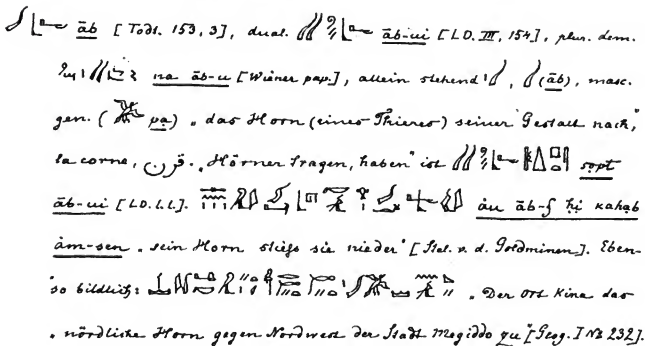 āb [Todt. 153, 3], dual. āb-ui [LD. III, 154], plur. dem.
na āb-u [Wiener pap.], allein stehend (āb), masc.
gen. (pa) „das Horn (eines Thieres) seiner Gestalt nach,"
la corne, قرن. „Hörner tragen, haben" ist sopt
āb-ui [LD. l.l.]. àu āb-f ḥi kahab
àm-sen „sein Horn stiefs sie nieder" [Stel. v. d. Goldminen]. Eben-
so bildlich: „Der Ort Kina das
„nördliche Horn gegen Nordwest der Stadt Megiddo zu" [Geog. I № 232].